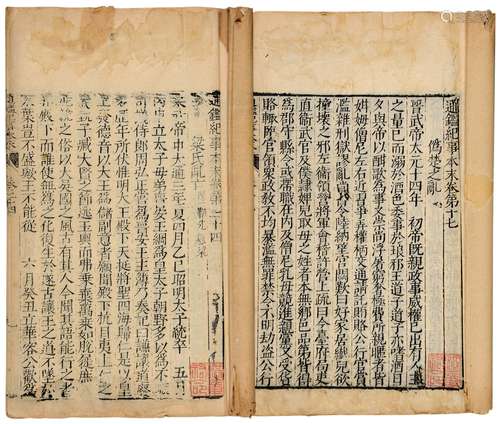 通鑑紀事本末卷第十七
偽楚之亂
晉武帝太元十四年 初帝既親政事威權已出有人主
之量已而溺於酒色委事於琅邪王道子道子亦嗜酒日
夕與帝以酣歌為事又崇尚浮屠窮奢極費所親暱者皆
姏姆僧尼左右近習爭弄權柄交通請託賄賂公行官賞
濫雜刑獄謬亂尚書令陸納望宮闕歎曰好家居纖兒欲
撞壞之邪左衛領營將軍會稽許營上疏曰今臺府局吏
直衛武官及僕隸婢兒取母之姓者本無鄉邑品第皆得
為郡守縣令或帶職在內及僧尼乳母競進親黨又受貨
賂輒臨官領眾政教不均暴濫無罪禁令不明劫盜公行
通鑑紀事本末卷第二十四
梁氏亂亡
梁武帝中大通三年夏四月乙巳昭明太子統卒 五月
立太子母弟晉安王綱為皇太子朝野多以為不
侍郎周弘正嘗為晉安王主簿乃奏記曰謙讓道廢
多歷年所伏惟明大王殿下天挺將聖四海歸仁是以皇
上發德音以大王為儲副意者願聞殿下抗目夷上仁之
執子臧大賢之節逃玉輿而弗乘棄萬乘如脫屣庶
之俗以大吳國之風古有其人今聞其語能行之者
非殿下而誰使無為之化復生於遂古讓王之道不墜於
來葉豈不盛歟王不能從 六月癸丑立華容公歡為